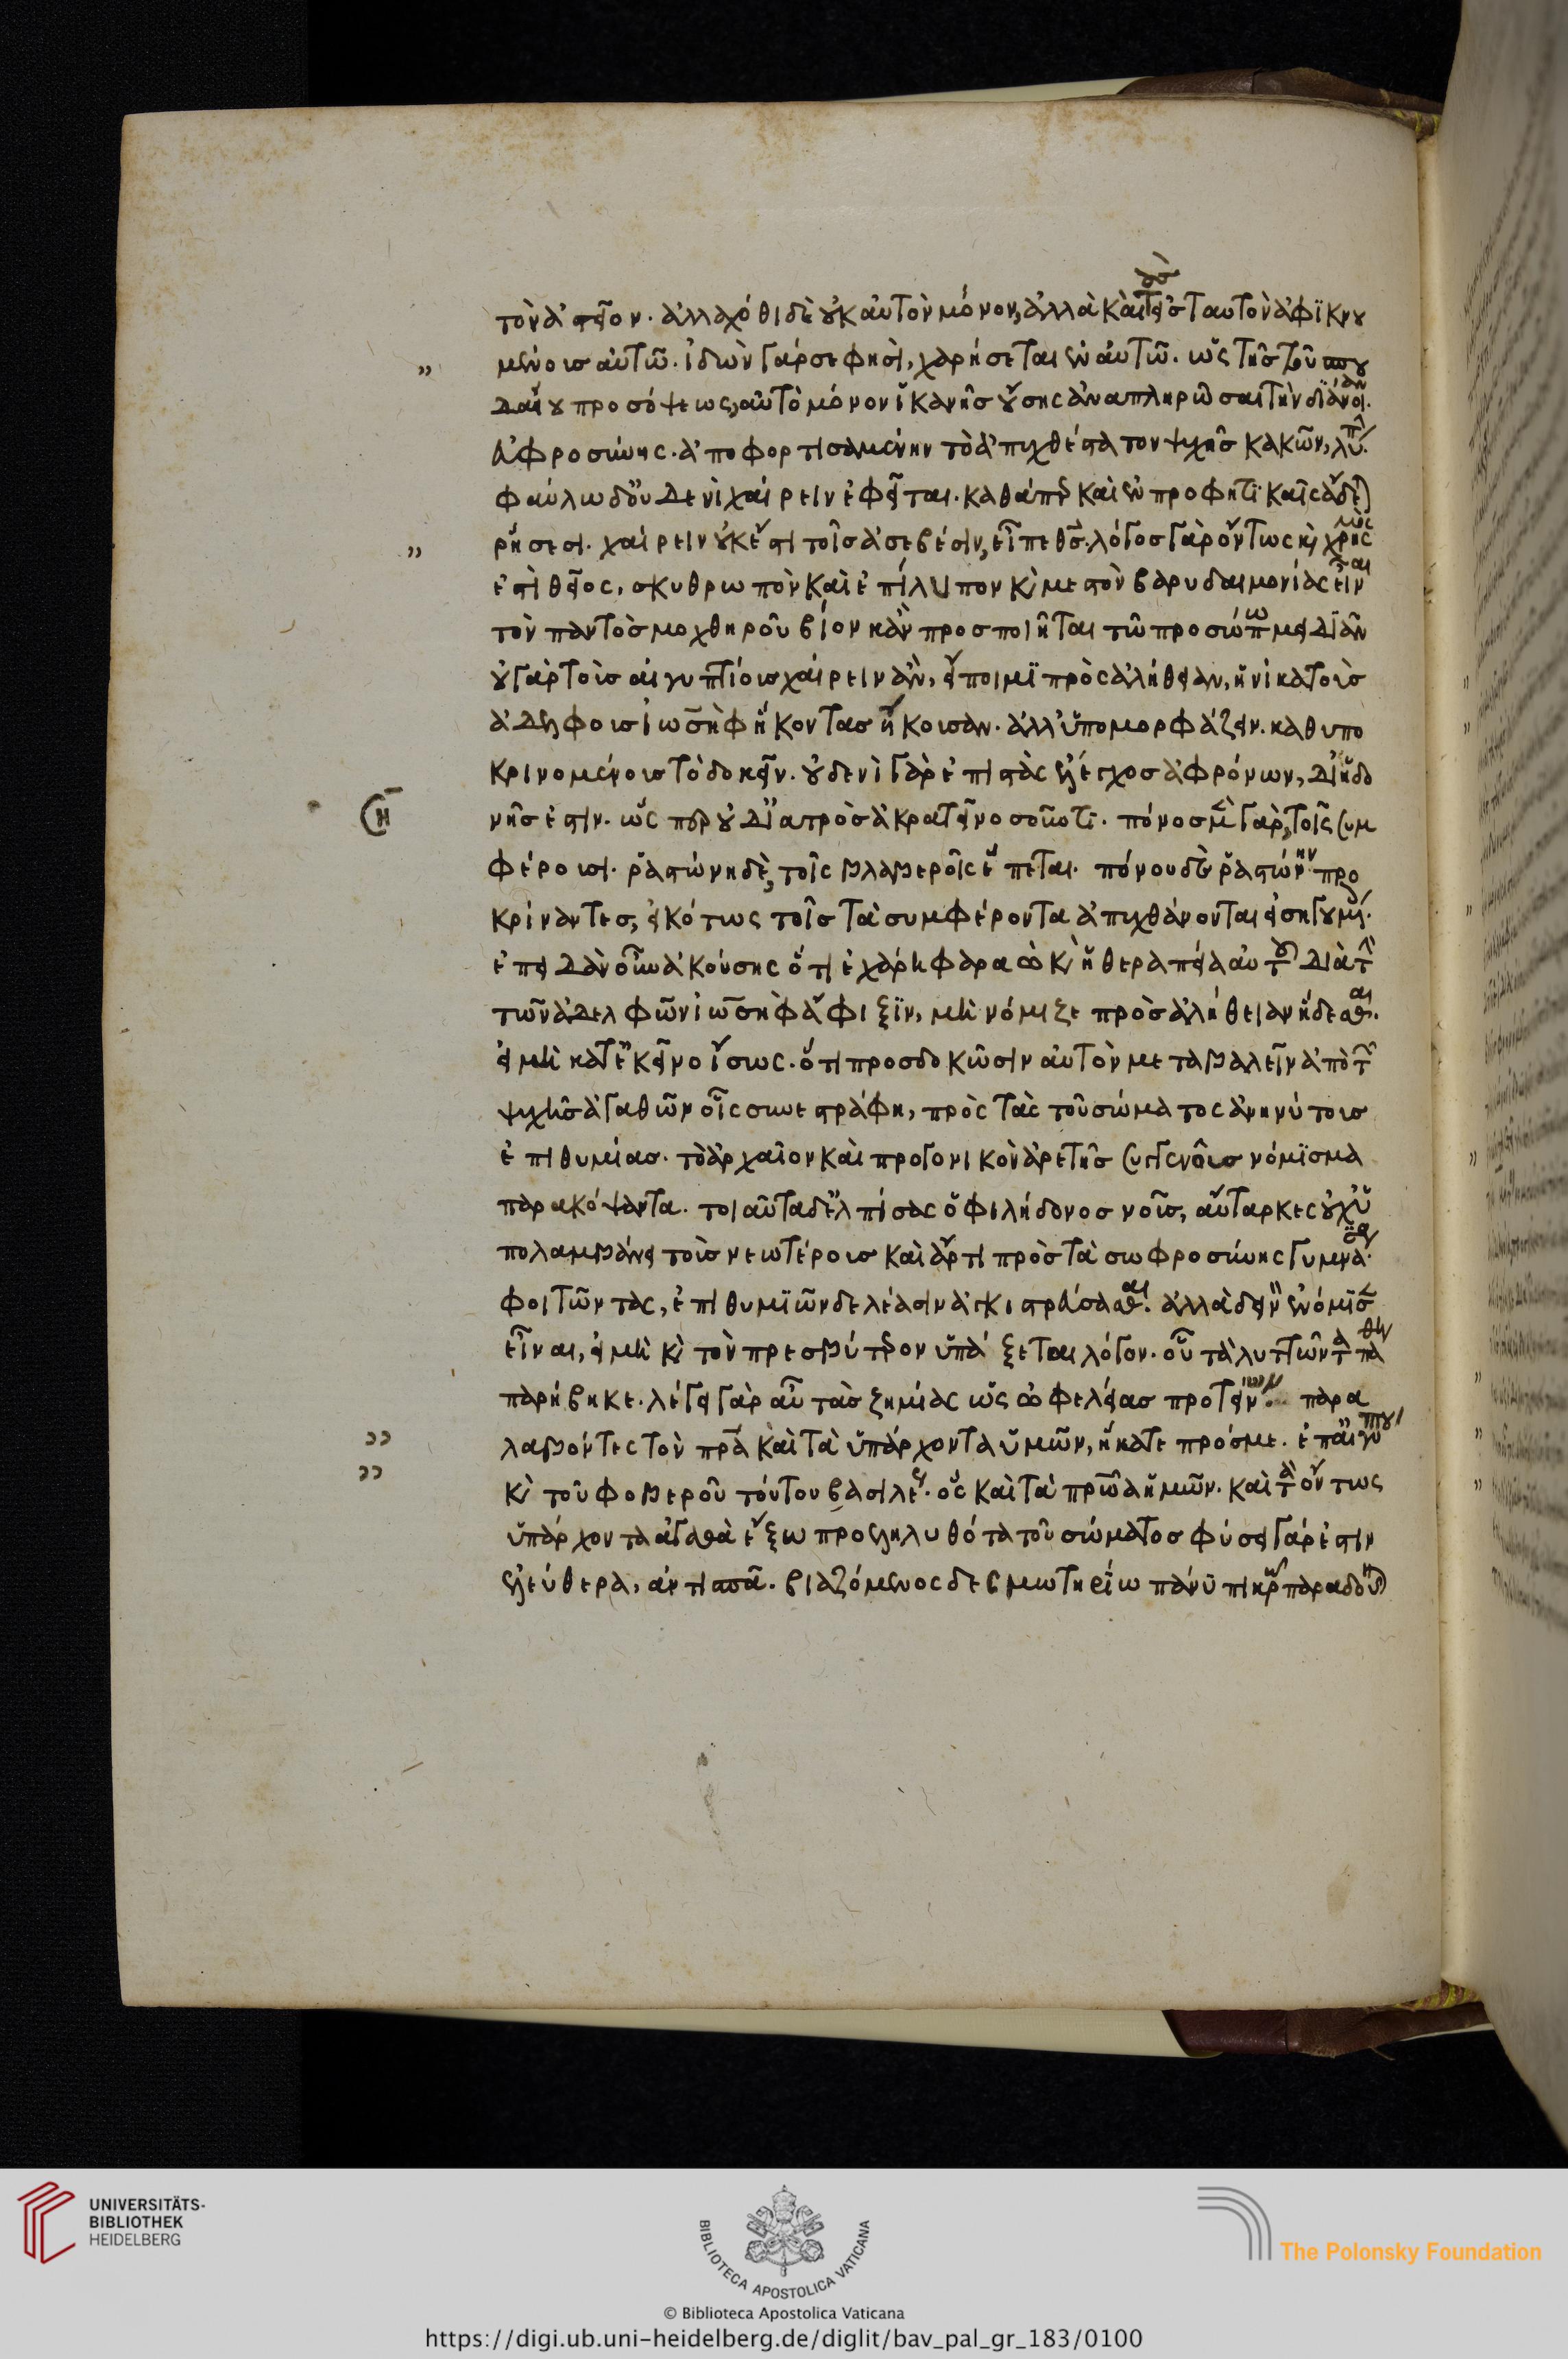 τὸν ἀστεῖον. ἀλλαχόθι δὲ οὐκ αὐτὸν μόνον, ἀλλὰ καὶ τοὺς εἰς ταυτὸν ἀφϊκνου
μένοις αὐτῶ. ἰδὼν γάρ σε φησὶ, χαρήσεται ἐν ἀυτῶ. ὡς τῆς τοῦ σπου
δαίου προσόψεως, αὐτὸ μόνον ἱκανῆς οὔσης ἀναπληρῶσαι τὴν διάνοιαν.
ἀφροσύνης. ἀποφορτισαμένην τὸ ἀπιχθέστατον ψυχῆς κακῶν, λύπην.
φαύλω δ' οὐδενὶ χαίρειν ἐφεῖται. καθάπερ καὶ ἐν προφητικαῖς ἄδεται
ρήσεσι. χαίρειν οὐκ ἔστι τοῖς ἀσεβέσιν, εἶπε θς. λόγος γὰρ ὄντως κὶ χρησμὸς
ἐστὶ θεῖος, σκυθρωπὸν καὶ ἐπίλυπον κὶ μεστὸν βαρυδαιμονίας εἶναι
τὸν παντὸς μοχθηροῦ βίον κἂν προσποιῆται τῶ προσώπω μειδιᾶν
οὐ γὰρ τοῖς αἰγυπτίοις χαίρειν ἂν, εἴποιμϊ πρὸς ἀλήθειαν, ἡνίκα τοὺς
ἀδελφοις ἰωσὴφ ἥκοντας ἤκουσαν. ἀλλ' ὑπομορφάζειν. καθυπο
κρινομένοις τὸ δοκεῖν. οὐδενὶ γὰρ ἐπιστὰς ἔλεγχος ἀφρόνων, δι' ἡδο
νῆς ἐστιν. ὡς περ οὐδ' ἰατρὸς ἀκρατεῖ νοσοῦντι. πόνος μὲν γὰρ, τοῖς συμ
φέρουσι. ῥαστώνη δὲ, τοῖς βλαβεροῖς ἕπεται. πόνου δὲ ῥαστώνην προ
κρίναντες, εἰκότως τοῖς τὰ συμφέροντα ἀπιχθάνονται εἰσηγουμένοις.
ἐπειδὰν οὖν ἀκούσης ὅτι ἐχάρη φαραὼ κὶ ἡ θεραπεία αυτοῦ διὰ τὴν
τῶν ἀδελφῶν ἰωσὴφ ἄφιξϊν, μὴ νόμιζε πρὸς ἀλήθειαν ἥδεσθαι.
εἰ μὴ κατ' ἐκεῖνο ἴσως. ὅτι προσδοκῶσιν αὐτὸν μεταβαλεῖν ἀπὸ τῶν
ψυχῆς ἀγαθῶν οἷς συνετράφη, πρὸς τὰς τοῦ σώματος ἀνηνύτοις
ἐπιθυμίας. τὸ ἀρχαῖον καὶ προγονικὸν ἀρετῆς συγγενοῦς νόμϊσμα
παρακόψαντα. τοιαῦτα δ' ἐλπίσας ὁ φιλήδονος νοῦς, αὔταρκες οὐχ ὑ
πολαμβάνει τοὺς νεωτέρους καὶ ἄρτι πρὸς τὰ σωφροσύνης γυμνάσια
φοιτῶντας, ἐπιθυμϊῶν δελέασιν ἀγκιστρεύσασθαι. ἀλλὰ δεινὸν ἐνόμϊσεν
εἶναι, εἰ μὴ κὶ τὸν πρεσβύτερον ὑπάξεται λόγον. οὗ τὰ λυττῶντα πάθη
παρήβηκε. λέγει γὰρ αὖ τὰς ζημίας ὡς ὠφελείας προτείνων. παρα
λαβόντες τὸν πρα καὶ τὰ ὑπάρχοντα ὑμῶν, ἥκατε πρός με. ἐπ' αἴγυπτου
κὶ τοῦ φοβεροῦ τούτου βασιλέως. ὃς καὶ τὰ πρῶα ἡμῶν. καὶ τὰ ὄντως
ὑπάρχοντα ἀγαθὰ ἔξω προεληλυθότα τοῦ σώματος φύσει γάρ ἐστιν
ἐλεύθερα, ἀντισπᾶ. βιαζόμενος δεσμωτηρίω πάνυ πικρῶ παραδοῦναι